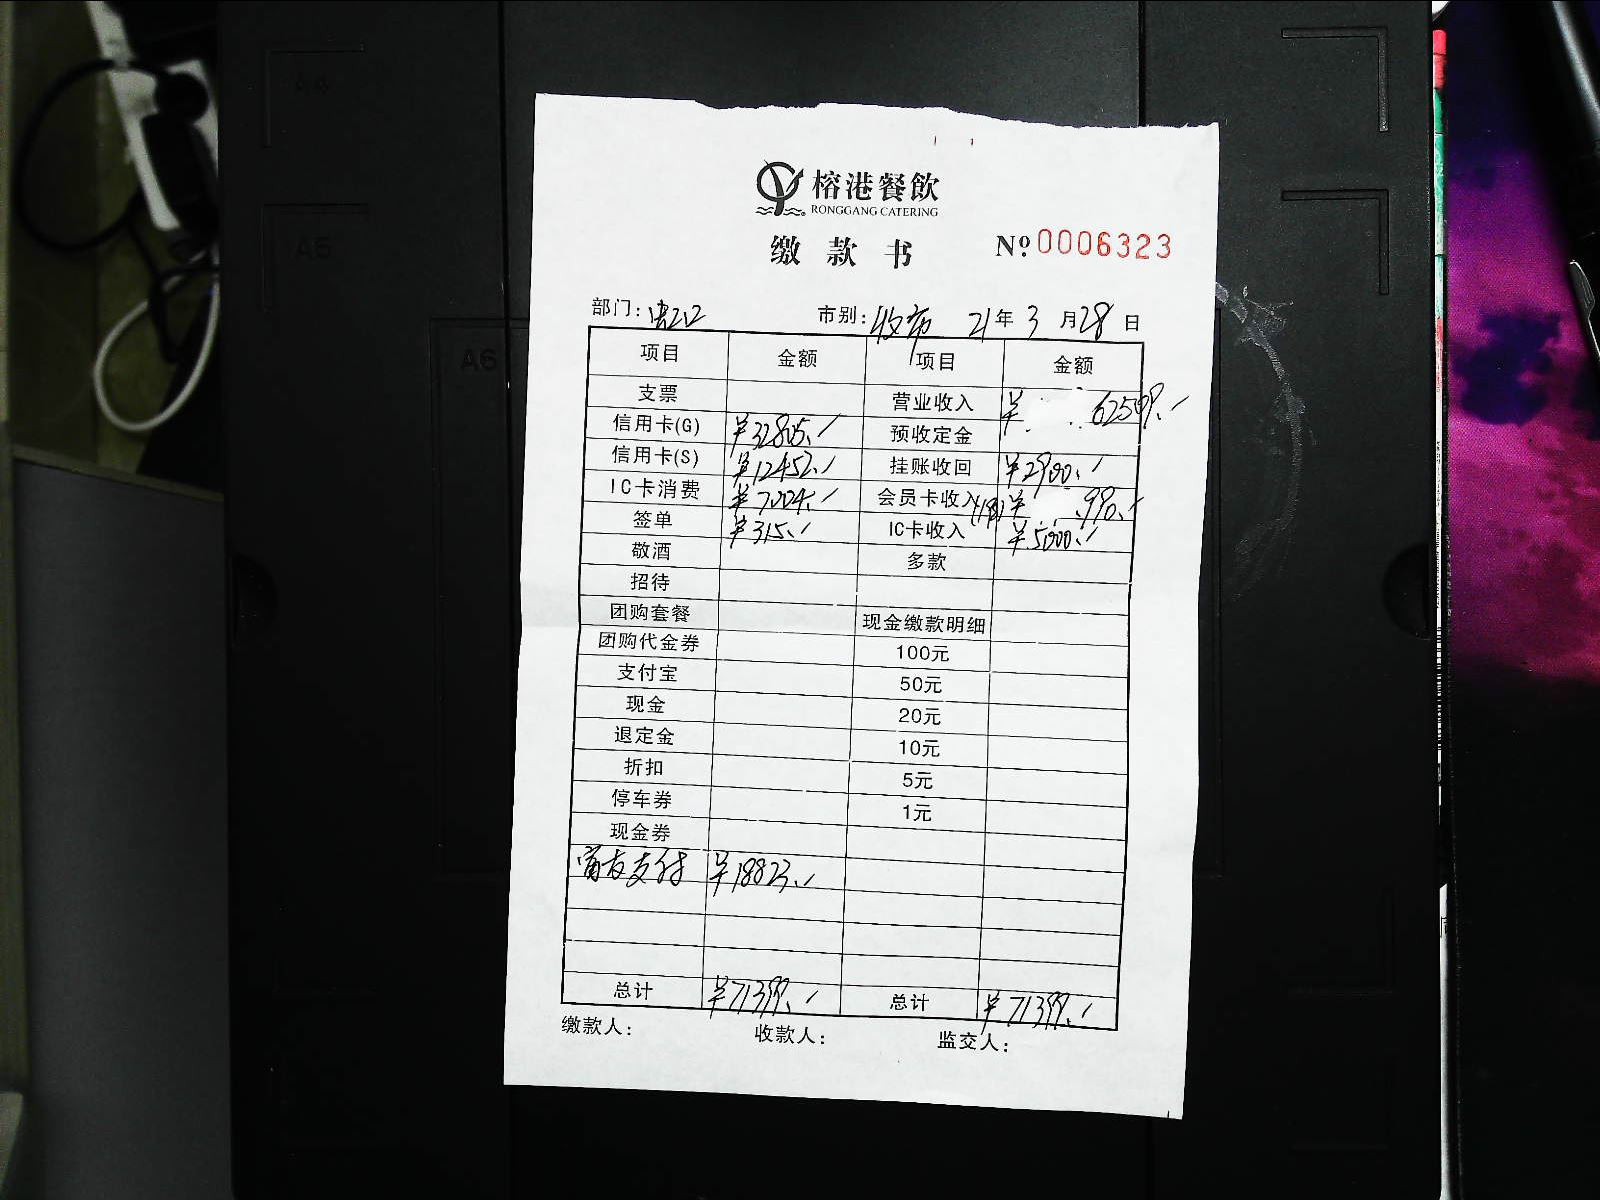 A5
A6
榕港餐飲
RONGGANG CATERING
缴款书
Nº 0006323
部门: 市别: 收市 21年3月28日
项目 金额 项目 金额
支票 营业收入 ¥62509.
信用卡(G) ¥32805. 预收定金
信用卡(S) ¥12452. 挂账收回 ¥2900.
IC卡消费 ¥7004. 会员卡收入 ¥990.
签单 ¥315. IC卡收入 ¥5000.
敬酒 多款
招待
团购套餐 现金缴款明细
团购代金券 100元
支付宝 50元
现金 20元
退定金 10元
折扣 5元
停车券 1元
现金券
富友支付 ¥18823.
总计 ¥71399. 总计 ¥71399.
缴款人: 收款人: 监交人: